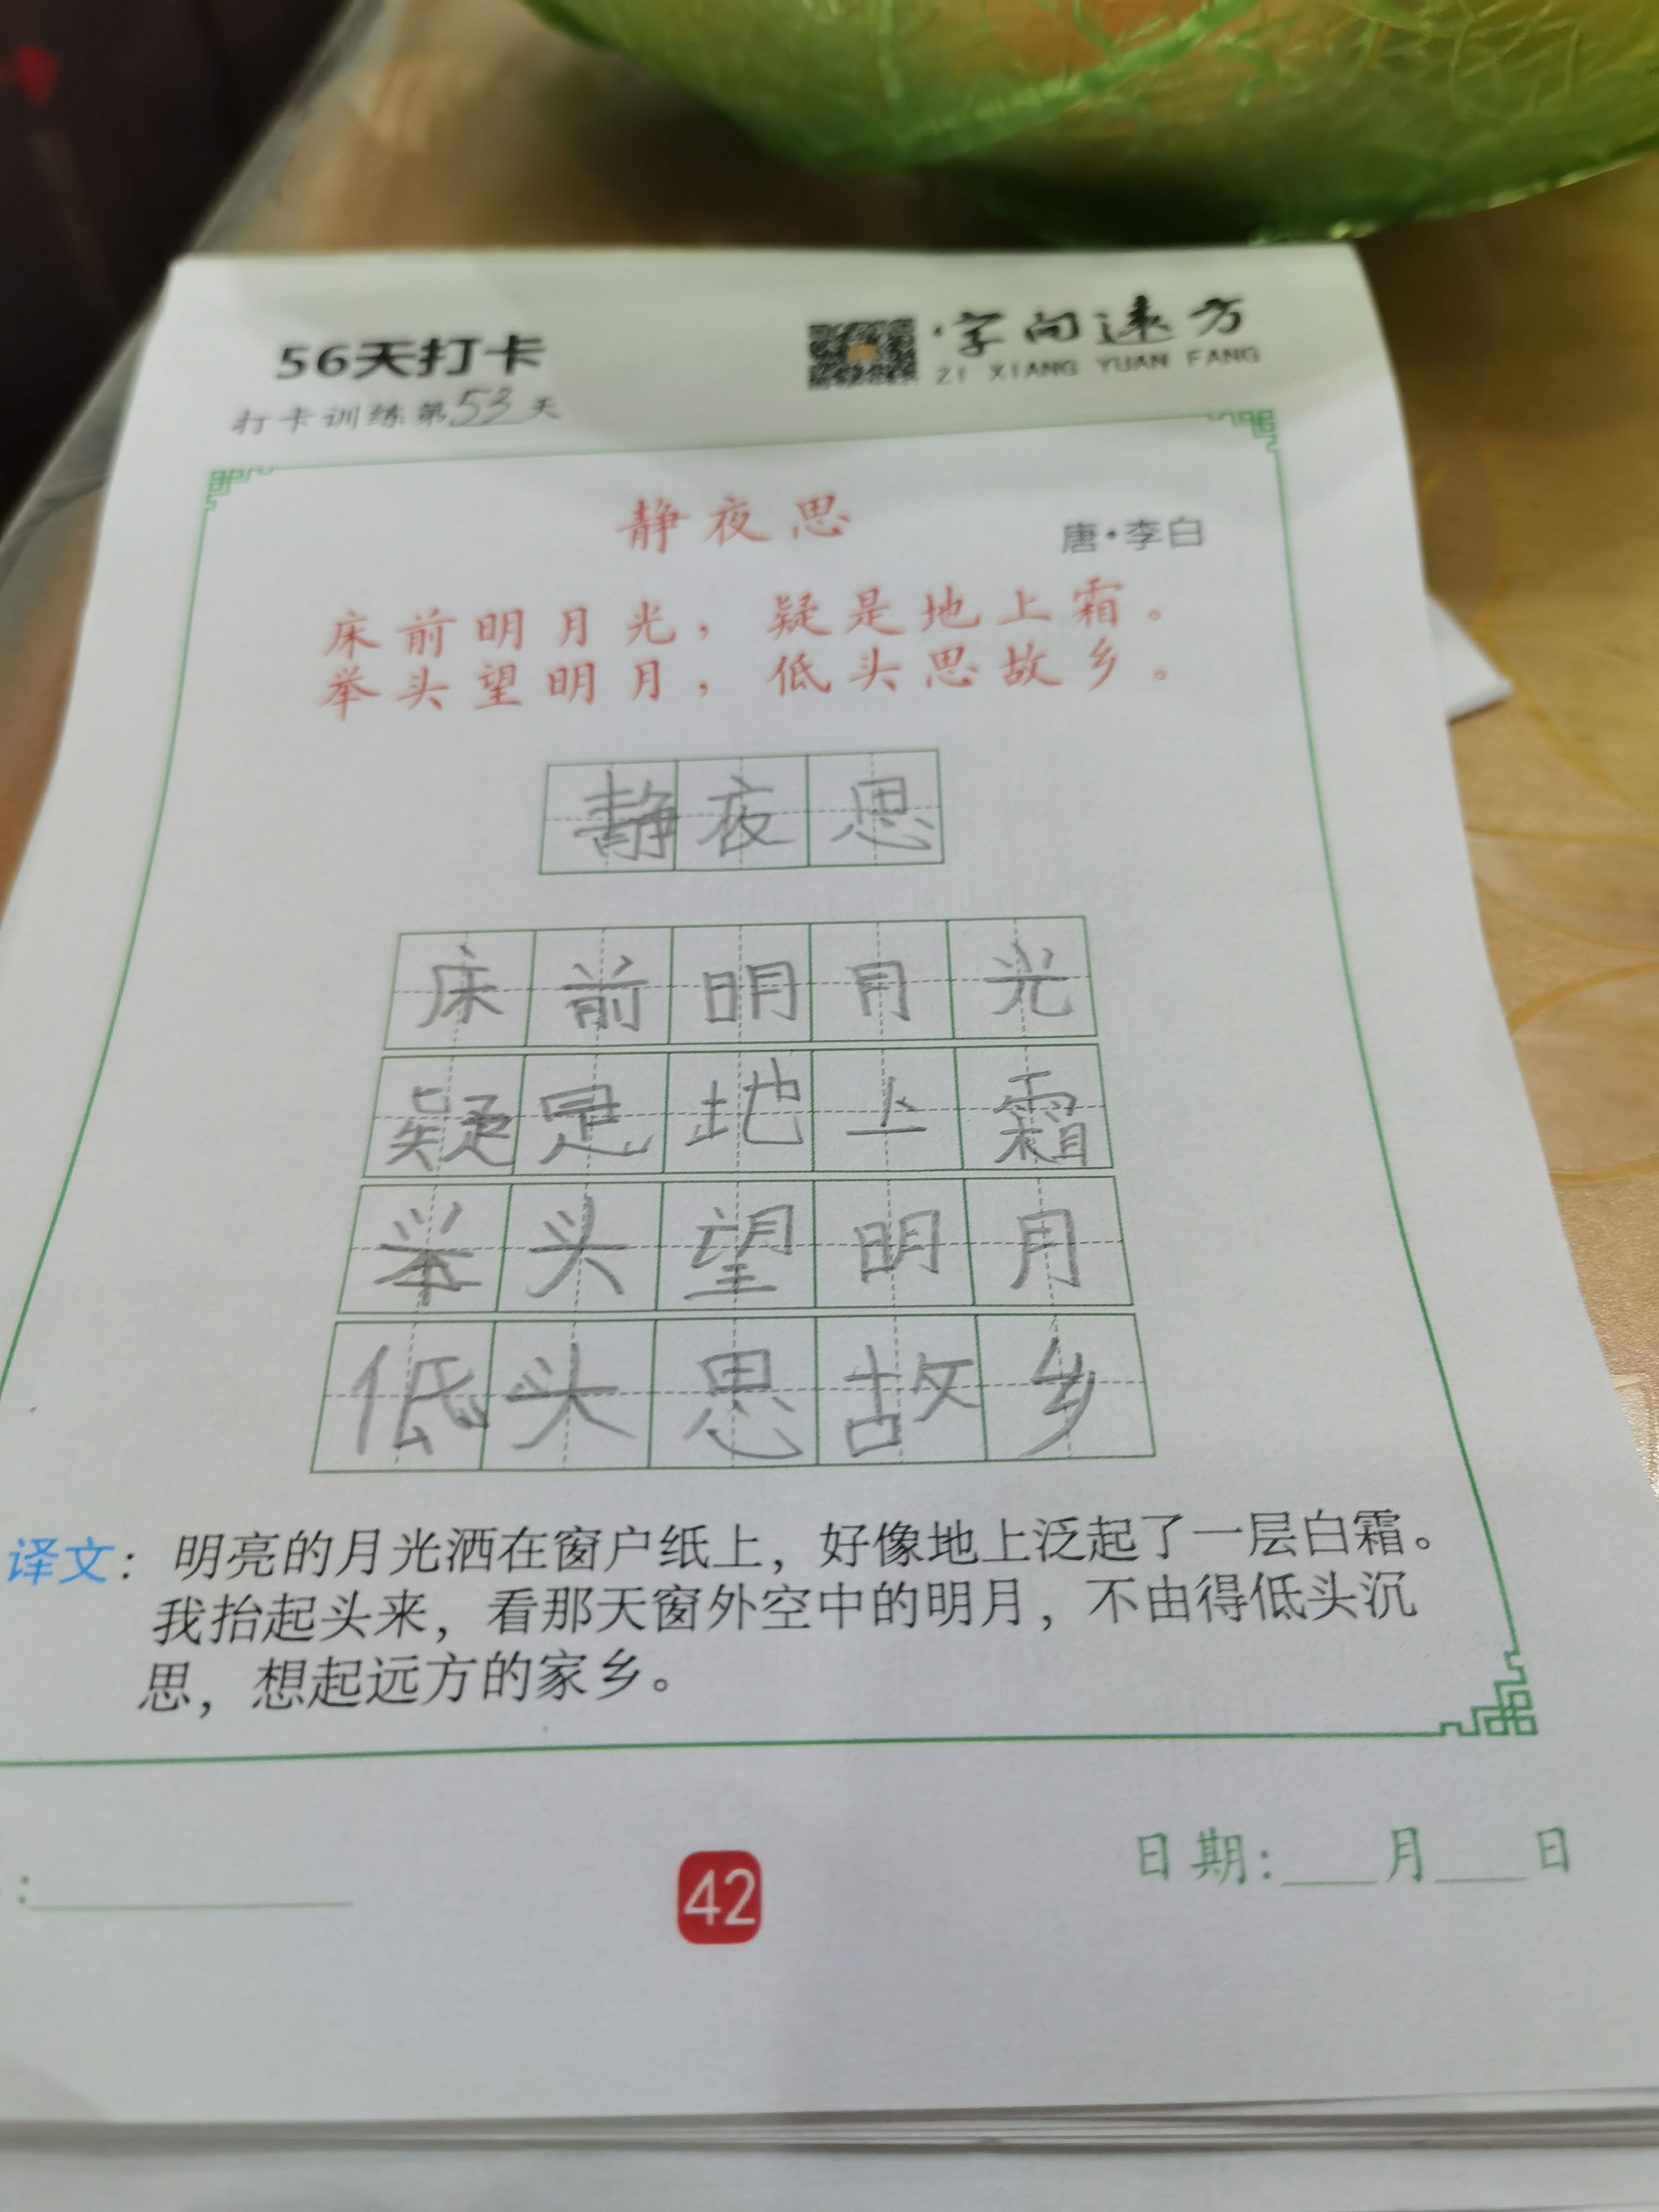 56天打卡
字向远方
ZI XIANG YUAN FANG
打卡训练第53天
静夜思
唐·李白
床前明月光，疑是地上霜。
举头望明月，低头思故乡。
静夜思
床前明月光
疑是地上霜
举头望明月
低头思故乡
译文：明亮的月光洒在窗户纸上，好像地上泛起了一层白霜。
我抬起头来，看那天窗外空中的明月，不由得低头沉
思，想起远方的家乡。
：
42
日期：___月___日